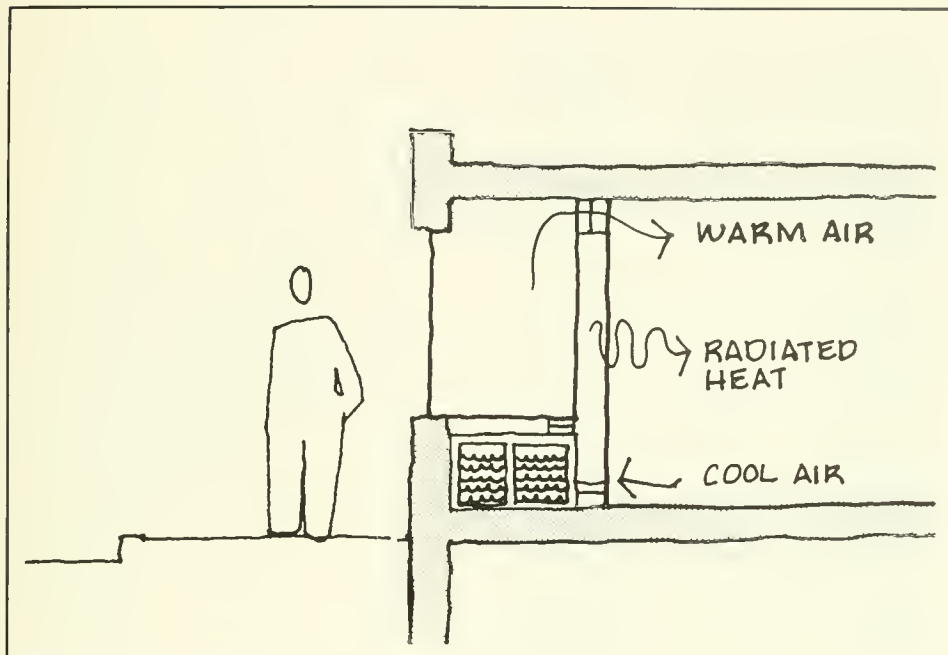 WARM AIR
RADIATED
HEAT
COOL AIR